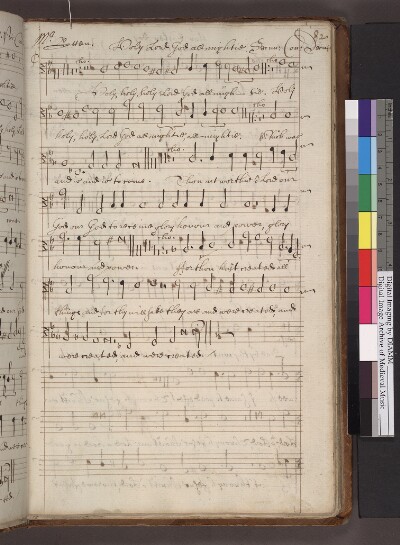 Mr Batten. Holy Lord God allmightie
Holy, holy, holy Lord God allmightie. Holy
holy, holy Lord God allmightie, allmightie.
and is and is to come. Thou art worthie o Lord our
God our God to receive glory honour and power, glory
honour and power. For thou hast created all
things, and for thy will sake they are and were created and
were created and were created.
Digital Imaging by DIAMM
Digital Image Archive of Medieval Music